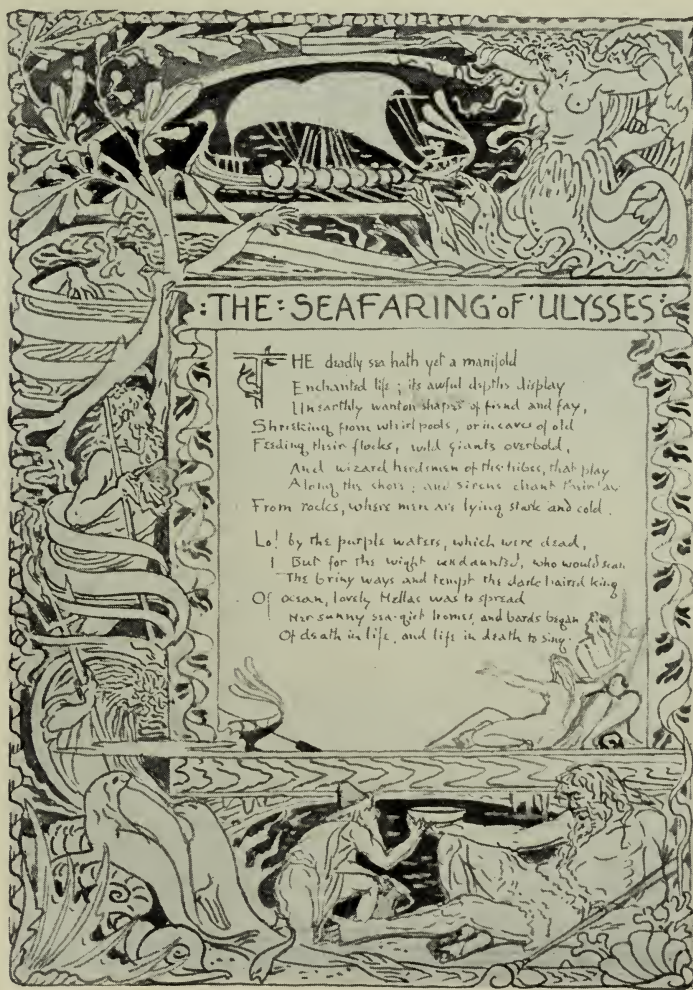 :THE: SEAFARING of ULYSSES:
THE deadly sea hath yet a manifold
Enchanted life; its awful depths display
Unearthly wanton shapes of fiend and fay,
Shrieking from whirlpools, or in caves of old
Feeding their flocks, wild giants overbold,
And wizard herdsmen of the tribes, that play
Along the shore; and sirens chant their lay
From rocks, where men are lying stark and cold.
Lo! by the purple waters, which were dead,
But for the wight undaunted, who would scan
The briny ways and tempt the dark haired king
Of ocean, lovely Hellas was to spread
Her sunny sea-girt homes, and bards began
Of death in life, and life in death to sing.